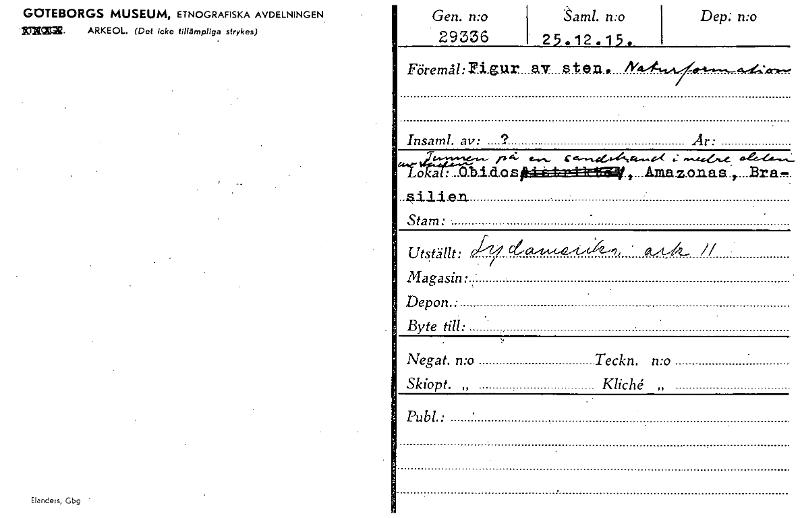 GÖTEBORGS MUSEUM, ETNOGRAFISKA AVDELNINGEN
ARKEOL. (Det icke tillämpliga strykes)
Gen. n:o Saml. n:o Dep. n:o
29336 25.12.15.
Föremål: Figur av sten. Naturformation
Insaml. av: ? År:
Funnen på en sandstrand i nedre delen
Lokal: Obidos distriktet, Amazonas, Bra-
silien
Stam:
Utställt: Sydamerika ark 11
Magasin:
Depon.:
Byte till:
Negat. n:o Teckn. n:o
Skiopt. „ Kliché „
Publ.:
Elanders, Gbg